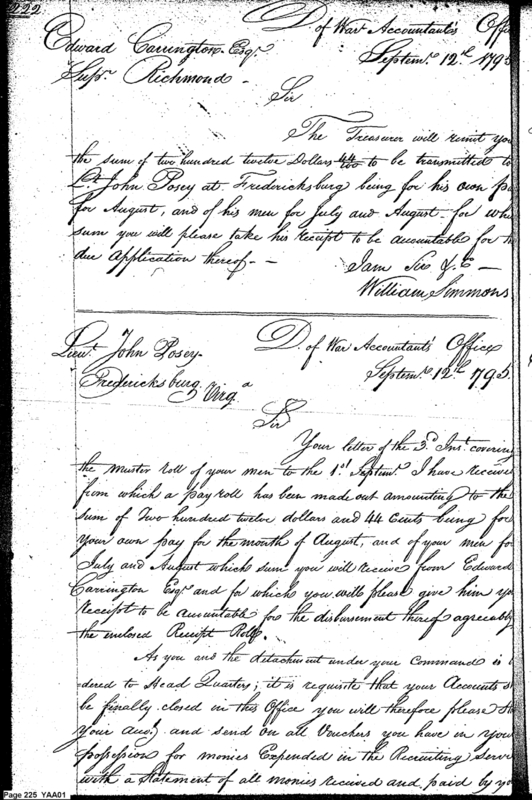 222
D of War Accountant's Offi
Edward Carrington Esqr
Septemr. 12th 1795
Supr. Richmond -
Sir
The Treasurer will remit you
the sum of two hundred twelve Dollars 44/100 to be transmitted to
Lt. John Posey at Fredericksburg being for his own pa
for August, and of his men for July and August - for whi
sum you will please take his receipt to be accountable for th
due application thereof - -
I am Sir &c -
William Simmons
Lieut. John Posey
D of War Accountants Office
Fredericksburg Virga
Septemr. 12th 1795.
Sir
Your letter of the 3d Inst. covering
the muster roll of your men to the 1st Septemr. I have receive
from which a pay roll has been made out amounting to the
sum of Two hundred twelve dollars and 44 Cents being for
your own pay for the month of August, and of your men fo
July and August which sum you will receive from Edward
Carrington Esqr and for which you will please give him yo
receipt to be accountable for the disbursement thereof agreeably
the enclosed Receipt Roll.
As you and the detachment under your Command is
dered to Head Quarters; it is requisite that your Accounts s
be finally closed in this Office you will therefore please st
your and send on all Vouchers you have in you
possession for monies Expended in the Recruiting serv
with a Statement of all monies received and paid by yo
Page 225 YAA01